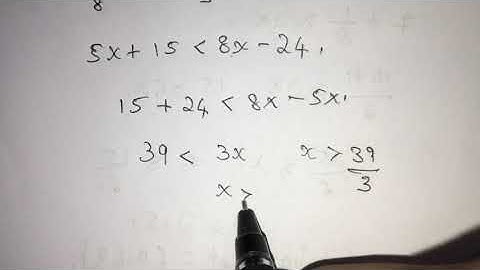 8
5x + 15 < 8x - 24.
15 + 24 < 8x - 5x.
39 < 3x x > 39/3
x >